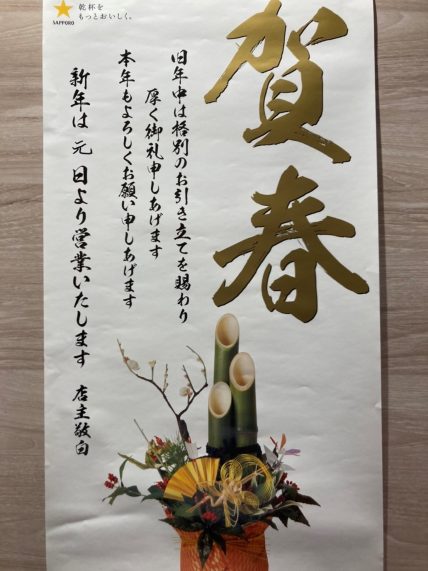 SAPPORO
乾杯を
もっとおいしく。
賀春
旧年中は格別のお引き立てを賜わり
厚く御礼申しあげます
本年もよろしくお願い申しあげます
新年は 元 日より営業いたします 店主敬白